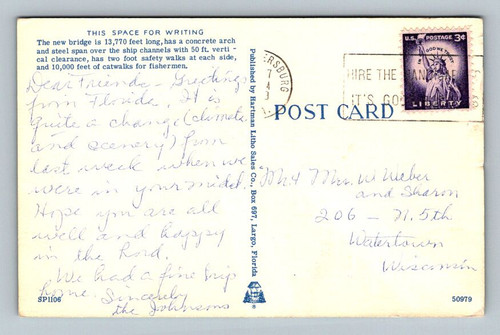 THIS SPACE FOR WRITING
The new bridge is 13,770 feet long, has a concrete arch
and steel span over the ship channels with 50 ft. verti-
cal clearance, has two foot safety walks at each side,
and 10,000 feet of catwalks for fishermen.
Dear Friends - Greetings
from Florida. It is
quite a change (climate
and scenery) from
last week when we
were in your midst.
Hope you are all
well and happy
in the Lord.
We had a fine trip
home. Sincerely
the Johnsons
SP1106
Published by Hartman Litho Sales Co., Box 697, Largo, Florida
®
ERSBURG
7
HIRE THE HANDIC
IT'S GOO
U.S. POSTAGE 3¢
IN GOD WE TRUST
LIBERTY
POST CARD
Mr & Mrs. W Weber
and Sharon
206 - N. 5th
Watertown
Wisconsin
50979